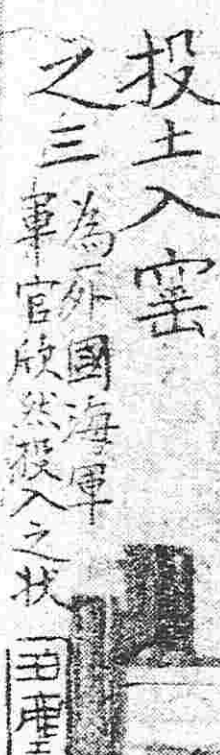 投土入窑
之三
為外國海軍
軍官欣然投入之狀